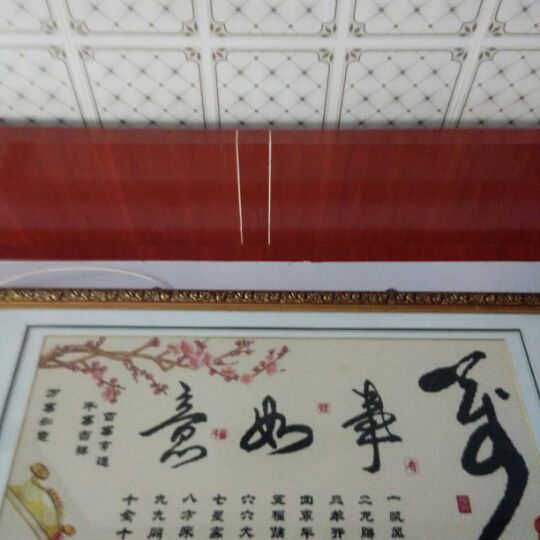 萬事如意
一帆风
二龙腾
三羊开
四季平
五福臨
六六大
七星高
八方来
九九同
十全十
百事亨通
千事吉祥
万事如意
福